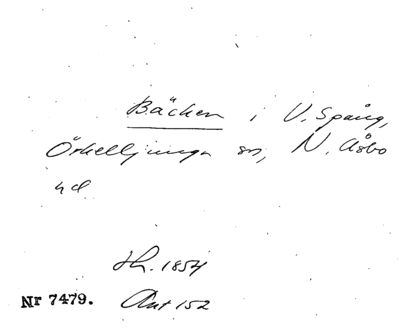 Bäcken i V. Spång,
Örkelljunga sn, N. Åsbo
hd
Sk. 1854
Nr 7479. Akt 152